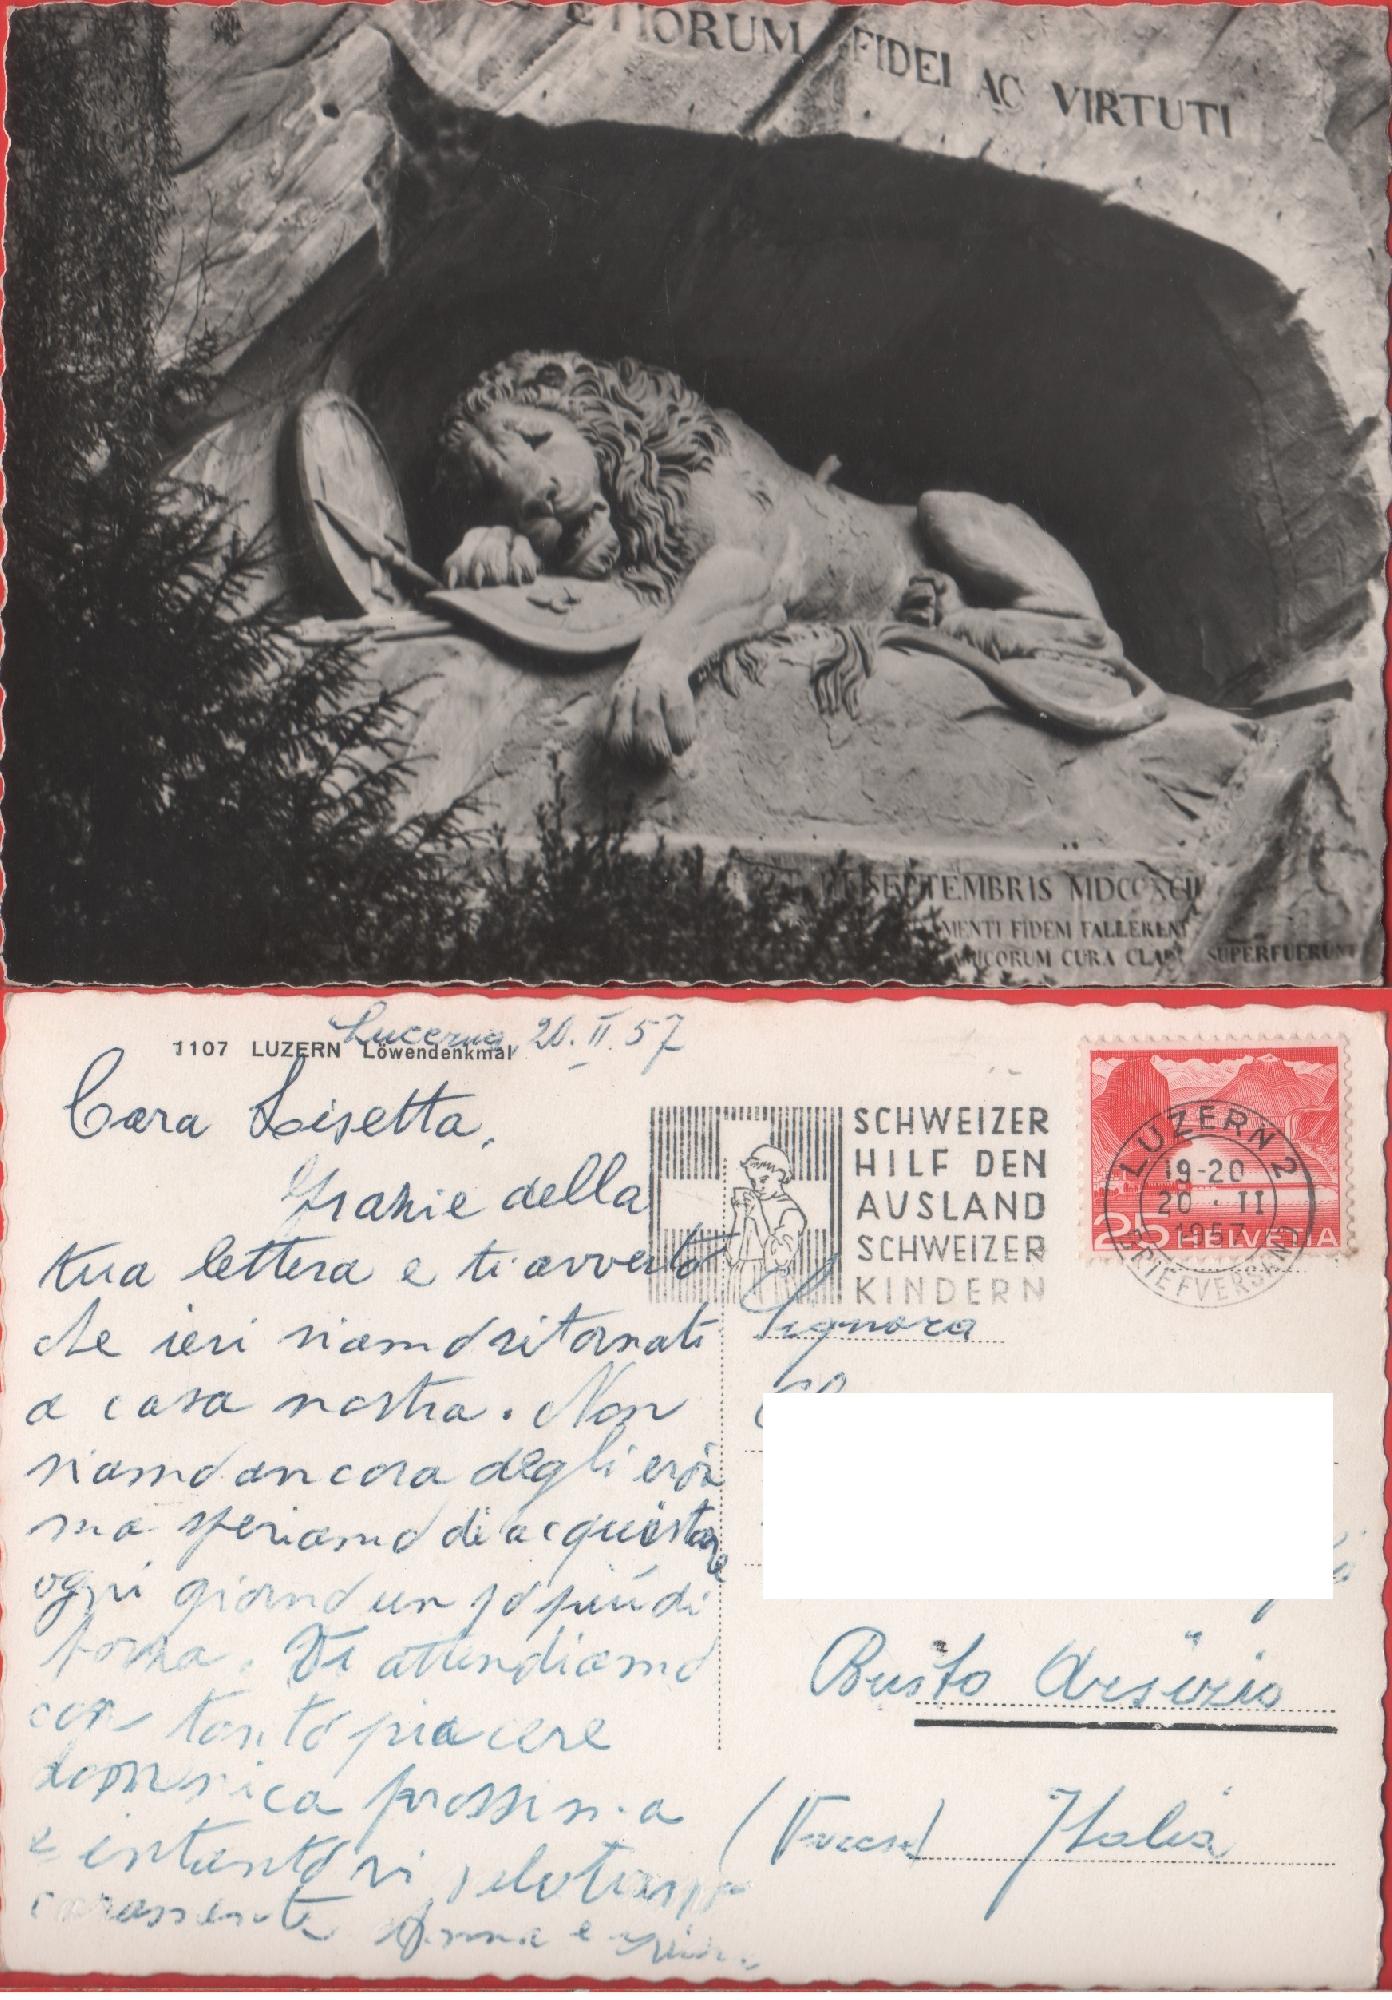 HELVETIORUM FIDEI AC VIRTUTI
SEPTEMBRIS MDCCXCII
MENTI FIDEM FALLERENT
AMICORUM CURA CLADI SUPERFUERUNT
Lucerna, 20.II.57
1107 LUZERN Löwendenkmal
Cara Lisetta,
Grazie della
tua lettera e ti avverto
che ieri siamo ritornati
a casa nostra. Non
siamo ancora degli eroi
ma speriamo di acquistare
ogni giorno un pò più di
forza. Vi attendiamo
con tanto piacere
domenica prossima
e intanto vi salutiamo
caramente Anna e
SCHWEIZER
HILF DEN
AUSLAND
SCHWEIZER
KINDERN
LUZERN 2
19-20
20 · II
1957
BRIEFVERSAND
25 HELVETIA
Signora
Busto Arsizio
(Varese) Italia